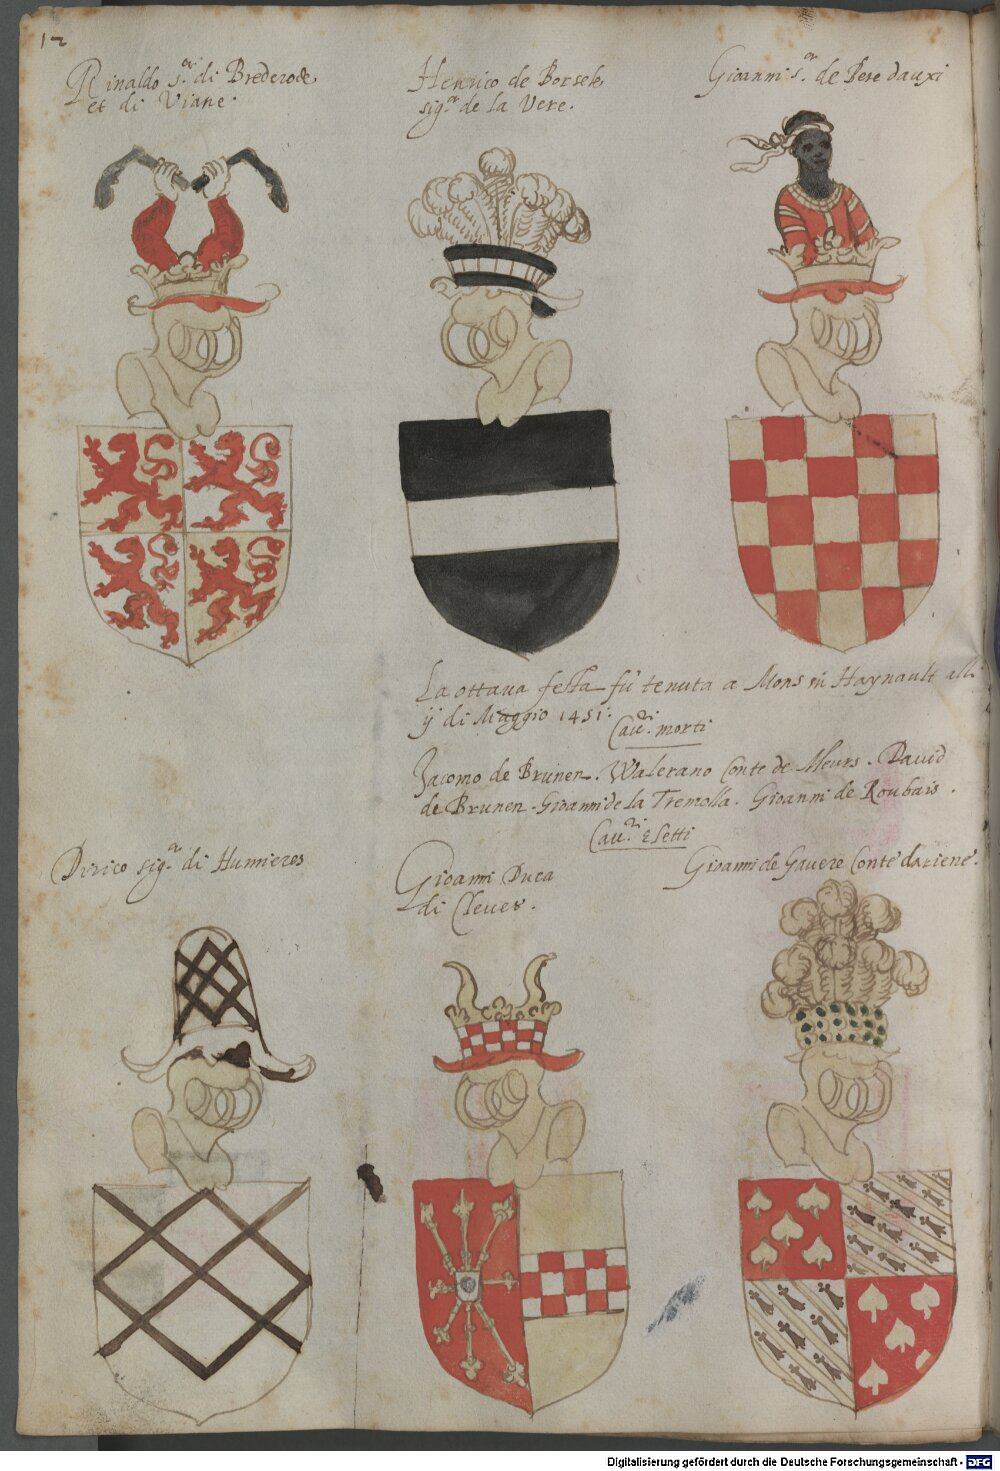 12
Rinaldo s.or di Brederode
et di Viane.
Henrico de Borsele
sig.or de la Vere.
Gioanni s.or de Pere dauxi
La ottava festa fù tenuta a Mons in Haynault alli
ij di Maggio 1451.
Cau.ri morti
Jacomo de Brimen. Walerano Conte de Meurs. David
de Brimen. Gioanni de la Tremolla. Gioanni de Roubais.
Cau.ri Eletti
Dirico sig.or di Humieres
Gioanni Duca
di Cleues.
Gioanni de Gavere Conte dariene.
Digitalisierung gefördert durch die Deutsche Forschungsgemeinschaft - DFG